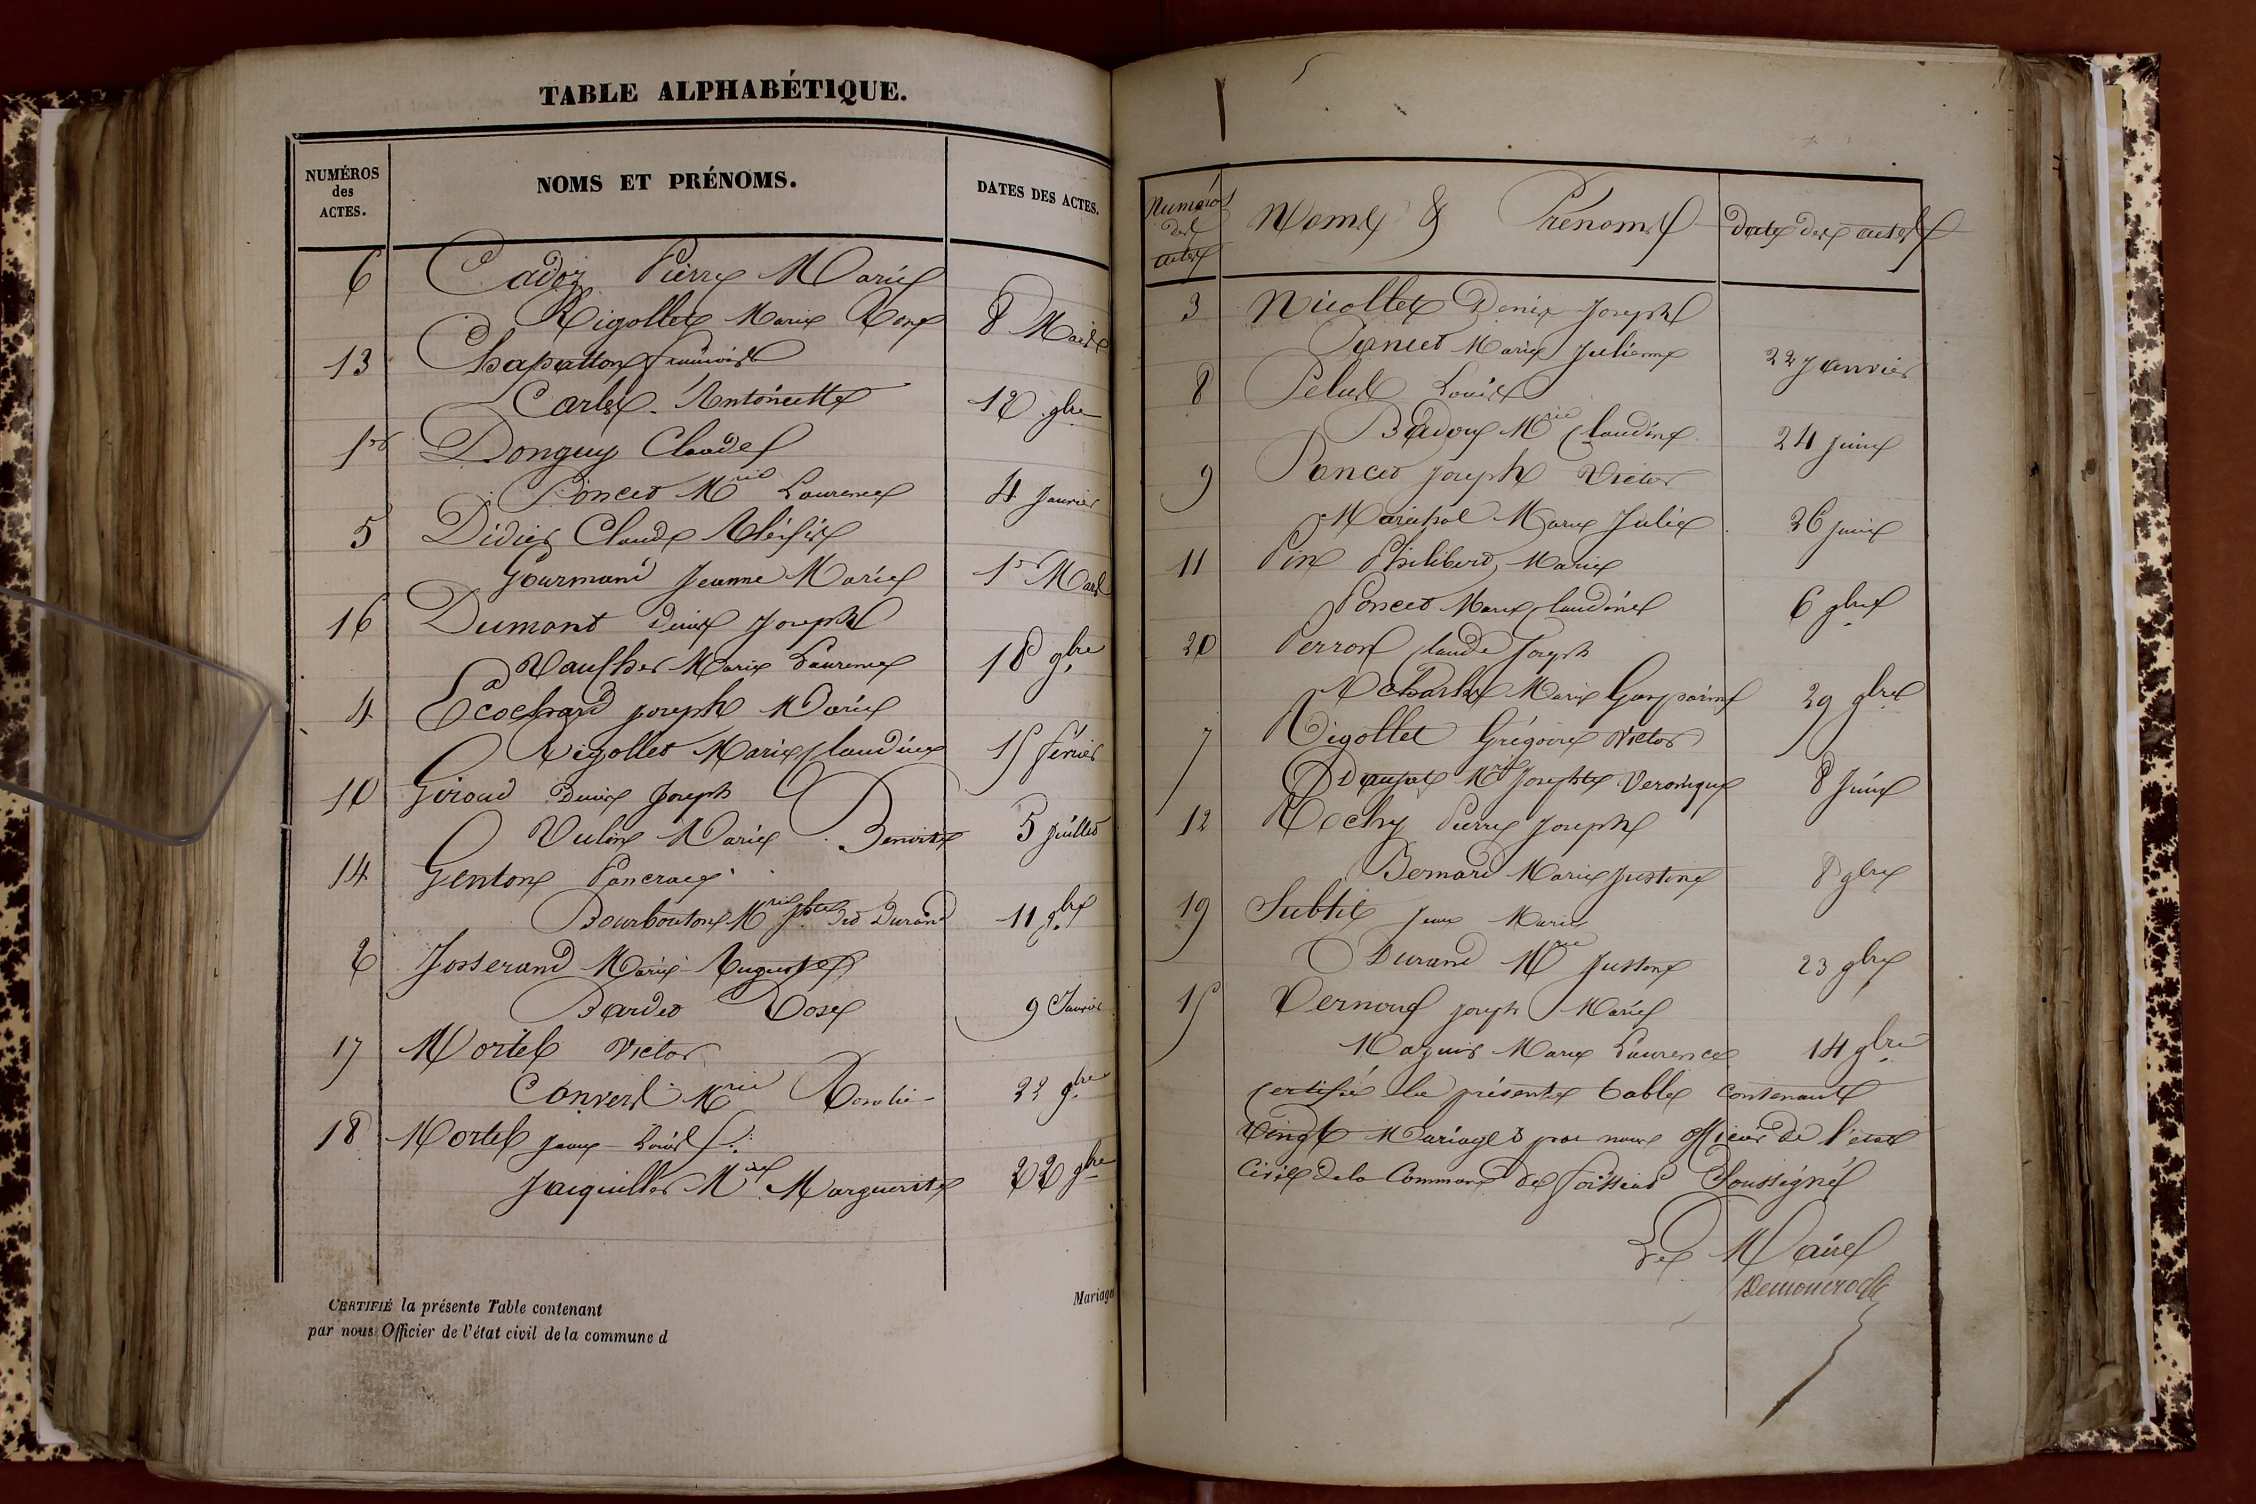 TABLE ALPHABÉTIQUE.
NUMÉROS des ACTES.
NOMS ET PRÉNOMS.
DATES DES ACTES.
6 Cadoz Pierre Marie
Rigollet Marie Rose 8 Mars
13 Chapatton François
Carle Antoinette 12 9bre
1er Donguy Claude
Poncet Mrie Laurence 4 Janvier
5 Didier Claude
Gourmand Jeanne Marie 1er Mars
16 Dumont Denis Joseph
Vauscher Marie Laurence 18 9bre
4 Ecochard Joseph Marie
Rigollet Marie Claudine 15 février
10 Giroud Denis Joseph
Vulin Marie Benoite 5 Juillet
14 Genton Pancrace
Bourbouton Mrie Jhte dit Durand 11 9bre
2 Josserand Marie Auguste
Bardet Rose 9 Janvier
17 Mortel Victor
Convert Mrie Rosalie 22 9bre
18 Mortel Jean Louis
Jacquillet Mrie Marguerite 22 9bre
CERTIFIÉ la présente Table contenant Mariage
par nous Officier de l'état civil de la commune d
Numéros des actes
Noms & Prénoms
Dates des actes
3 Nicollet Denis Joseph
Poncet Marie Julienne 22 Janvier
8 Pelus Louis
Badoux Mrie Claudine 24 Juin
9 Poncet Joseph Victor
Maréchal Marie Julie 26 Juin
11 Pin Philibert Marie
Poncet Marie Claudine 6 9bre
20 Perron Claude Joseph
Marie Gasparine 29 9bre
7 Rigollet Grégoire Victor
Mrie Josephte Veronique 8 Juin
12 Rochy Pierre Joseph
Bernard Marie Justine 8 9bre
19 Subtil Jean Marie
Durand Mrie Justine 23 9bre
15 Vernoux Joseph Marie
Mazuir Marie Laurence 14 9bre
Certifié la présente table contenant
Vingt Mariages par nous officier de l'état
Civil de la Commune de foissiat Soussigné
Le Maire